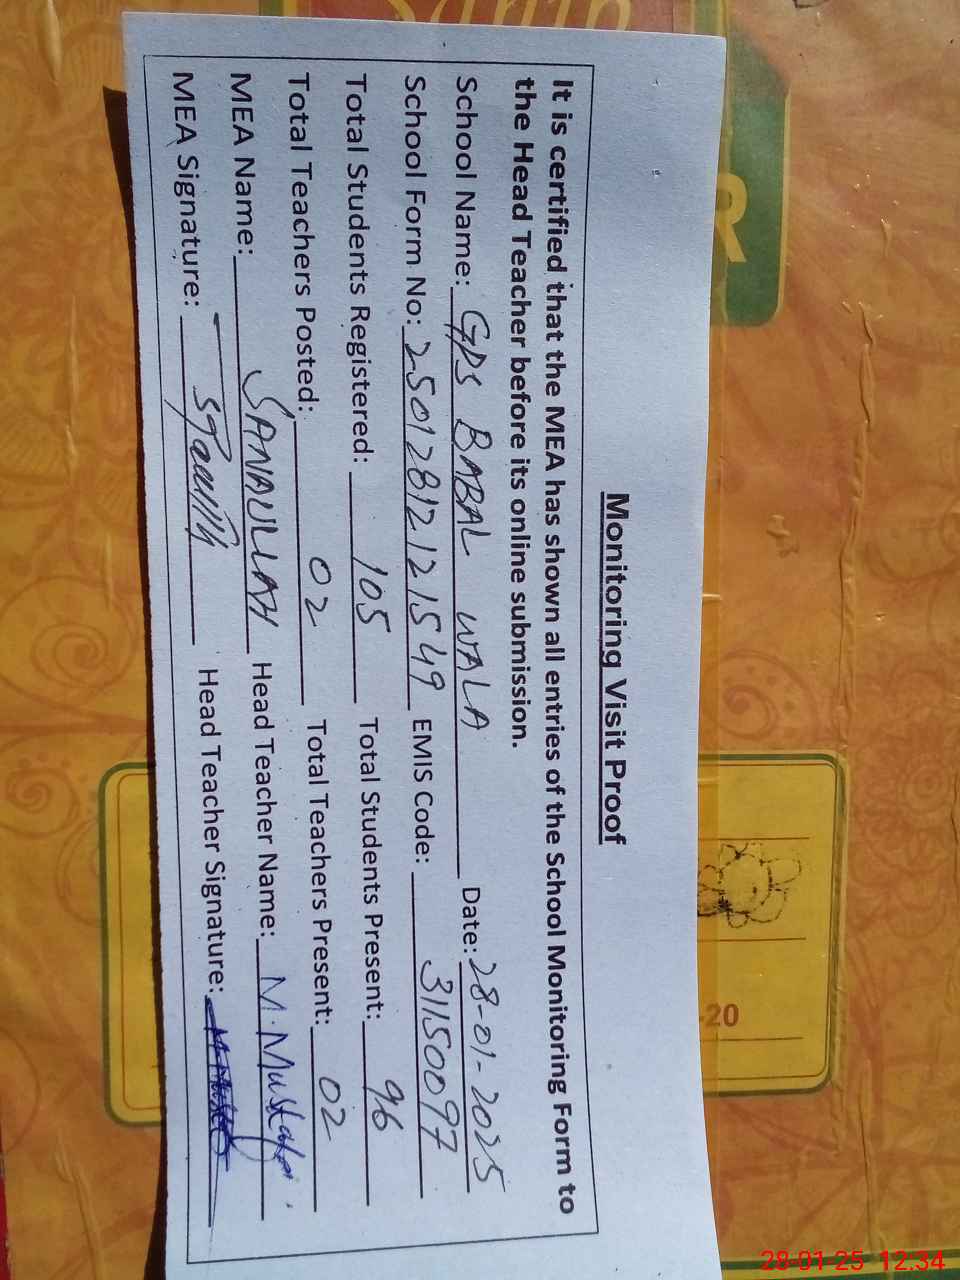 Monitoring Visit Proof
It is certified that the MEA has shown all entries of the School Monitoring Form to
the Head Teacher before its online submission.
School Name: GPS BABAL WALA Date: 28-01-2025
School Form No: 25012812121549 EMIS Code: 31150097
Total Students Registered: 105 Total Students Present: 96
Total Teachers Posted: 02 Total Teachers Present: 02
MEA Name: SANAULLAH Head Teacher Name: M. Mustafa
MEA Signature: Head Teacher Signature:
-20
28-01-25 12:34